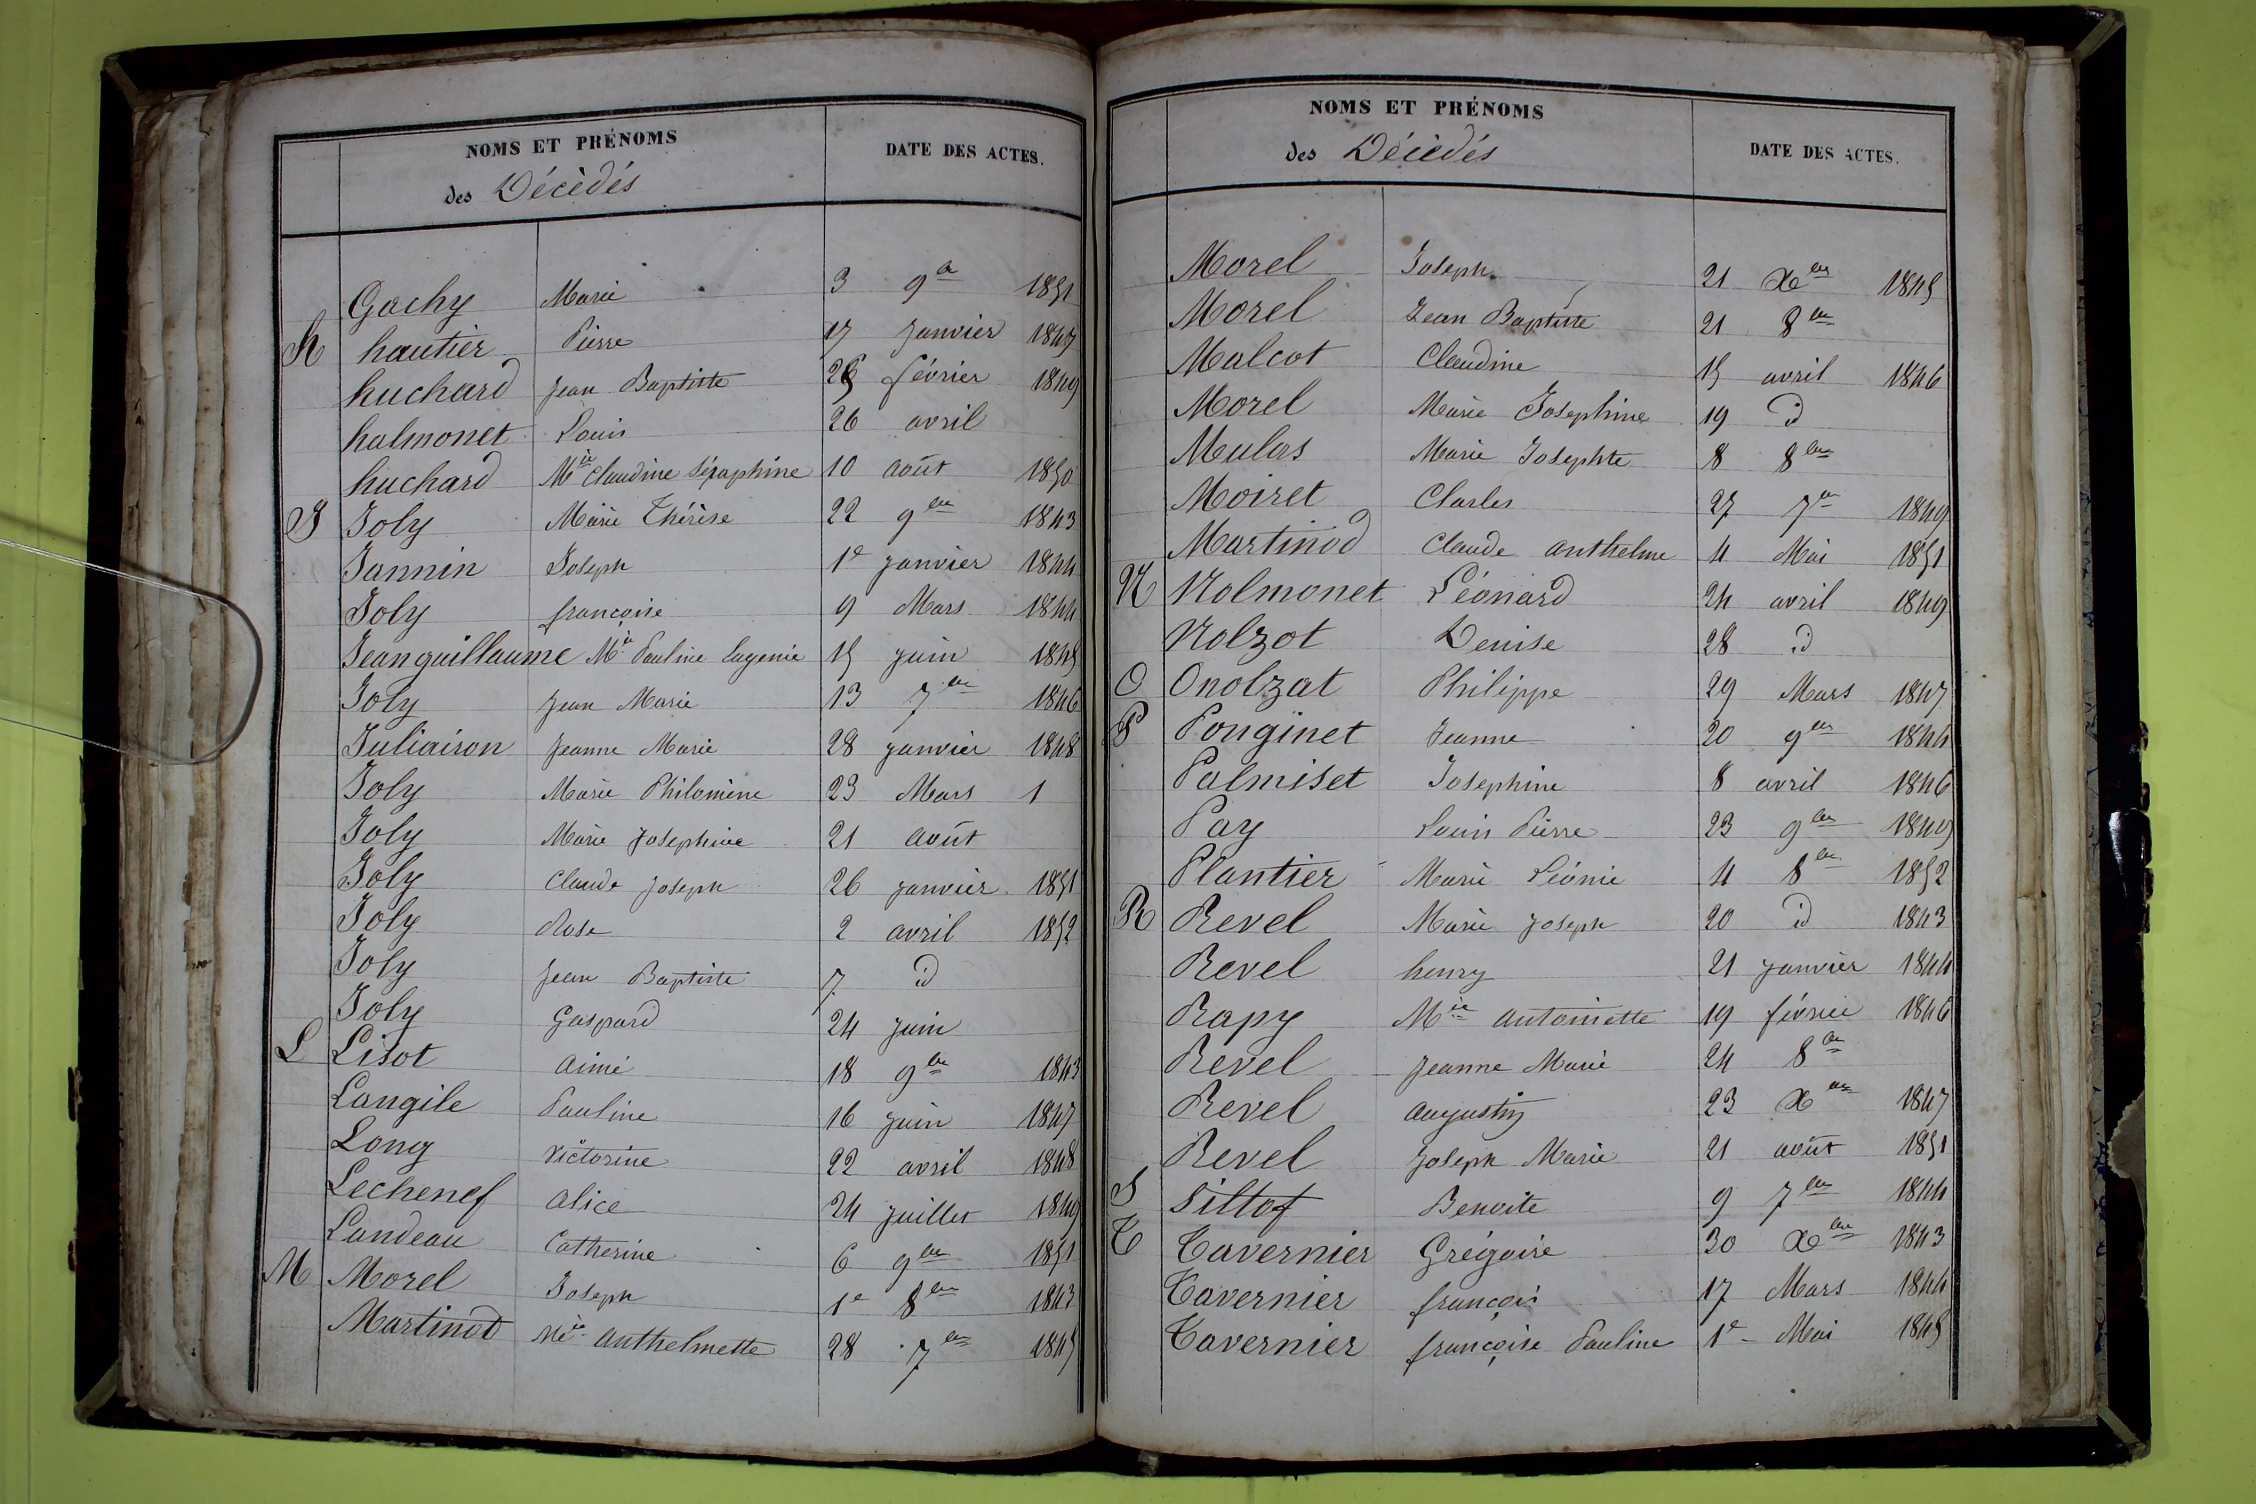 NOMS ET PRÉNOMS
des Décédés
DATE DES ACTES.
Gachy Marie 3 9bre 1851
H hautier Pierre 17 Janvier 1847
huchard Jean Baptiste 25 février 1849
halmonet Louis 26 avril
huchard Mie Claudine Séraphine 10 août 1850
J Joly Marie Thérèse 22 9bre 1843
Jannin Joseph 1e janvier 1844
Joly françoise 9 Mars 1844
Jeanguillaume Mie Pauline Eugenie 15 juin 1845
Joly Jean Marie 13 7bre 1846
Juliaison Jeanne Marie 28 janvier 1848
Joly Marie Philomène 23 Mars 1
Joly Marie Josephine 21 août
Joly Claude Joseph 26 janvier 1851
Joly Rose 2 avril 1852
Joly Jean Baptiste 7 id
Joly Gaspard 24 juin
L Lisot aimé 18 9bre 1843
Langile Pauline 16 juin 1847
Long Victorine 22 avril 1848
Lechenef alice 24 juillet 1849
Landeau Catherine 6 9bre 1851
M Morel Joseph 1e 8bre 1843
Martinod Mie anthelmette 28 7bre 1845
NOMS ET PRÉNOMS
des Décédés
DATE DES ACTES.
Morel Joseph 21 Xbre 1845
Morel Jean Baptiste 21 8bre
Malcot Claudine 15 avril 1846
Morel Marie Josephine 19 id
Mulas Marie Josephte 8 8bre
Moiret Charles 27 7bre 1849
Martinod Claude anthelme 4 Mai 1851
N Nolmonet Léonard 24 avril 1849
Nolzot Denise 28 id
O Onolzat Philippe 29 Mars 1847
P Ponginet Jeanne 20 9bre 1844
Palmiset Josephine 8 avril 1846
Pay Louis Pierre 23 9bre 1849
Plantier Marie Léonie 4 8bre 1852
R Revel Marie Joseph 20 id 1843
Revel henry 21 janvier 1844
Rapy Mie antoinette 19 février 1846
Revel Jeanne Marie 24 8bre
Revel augustin 23 Xbre 1847
Revel Joseph Marie 21 août 1851
S Sillof Benoite 9 7bre 1844
T Tavernier Grégoire 30 Xbre 1843
Tavernier françois 17 Mars 1844
Tavernier françoise Pauline 1e Mai 1845